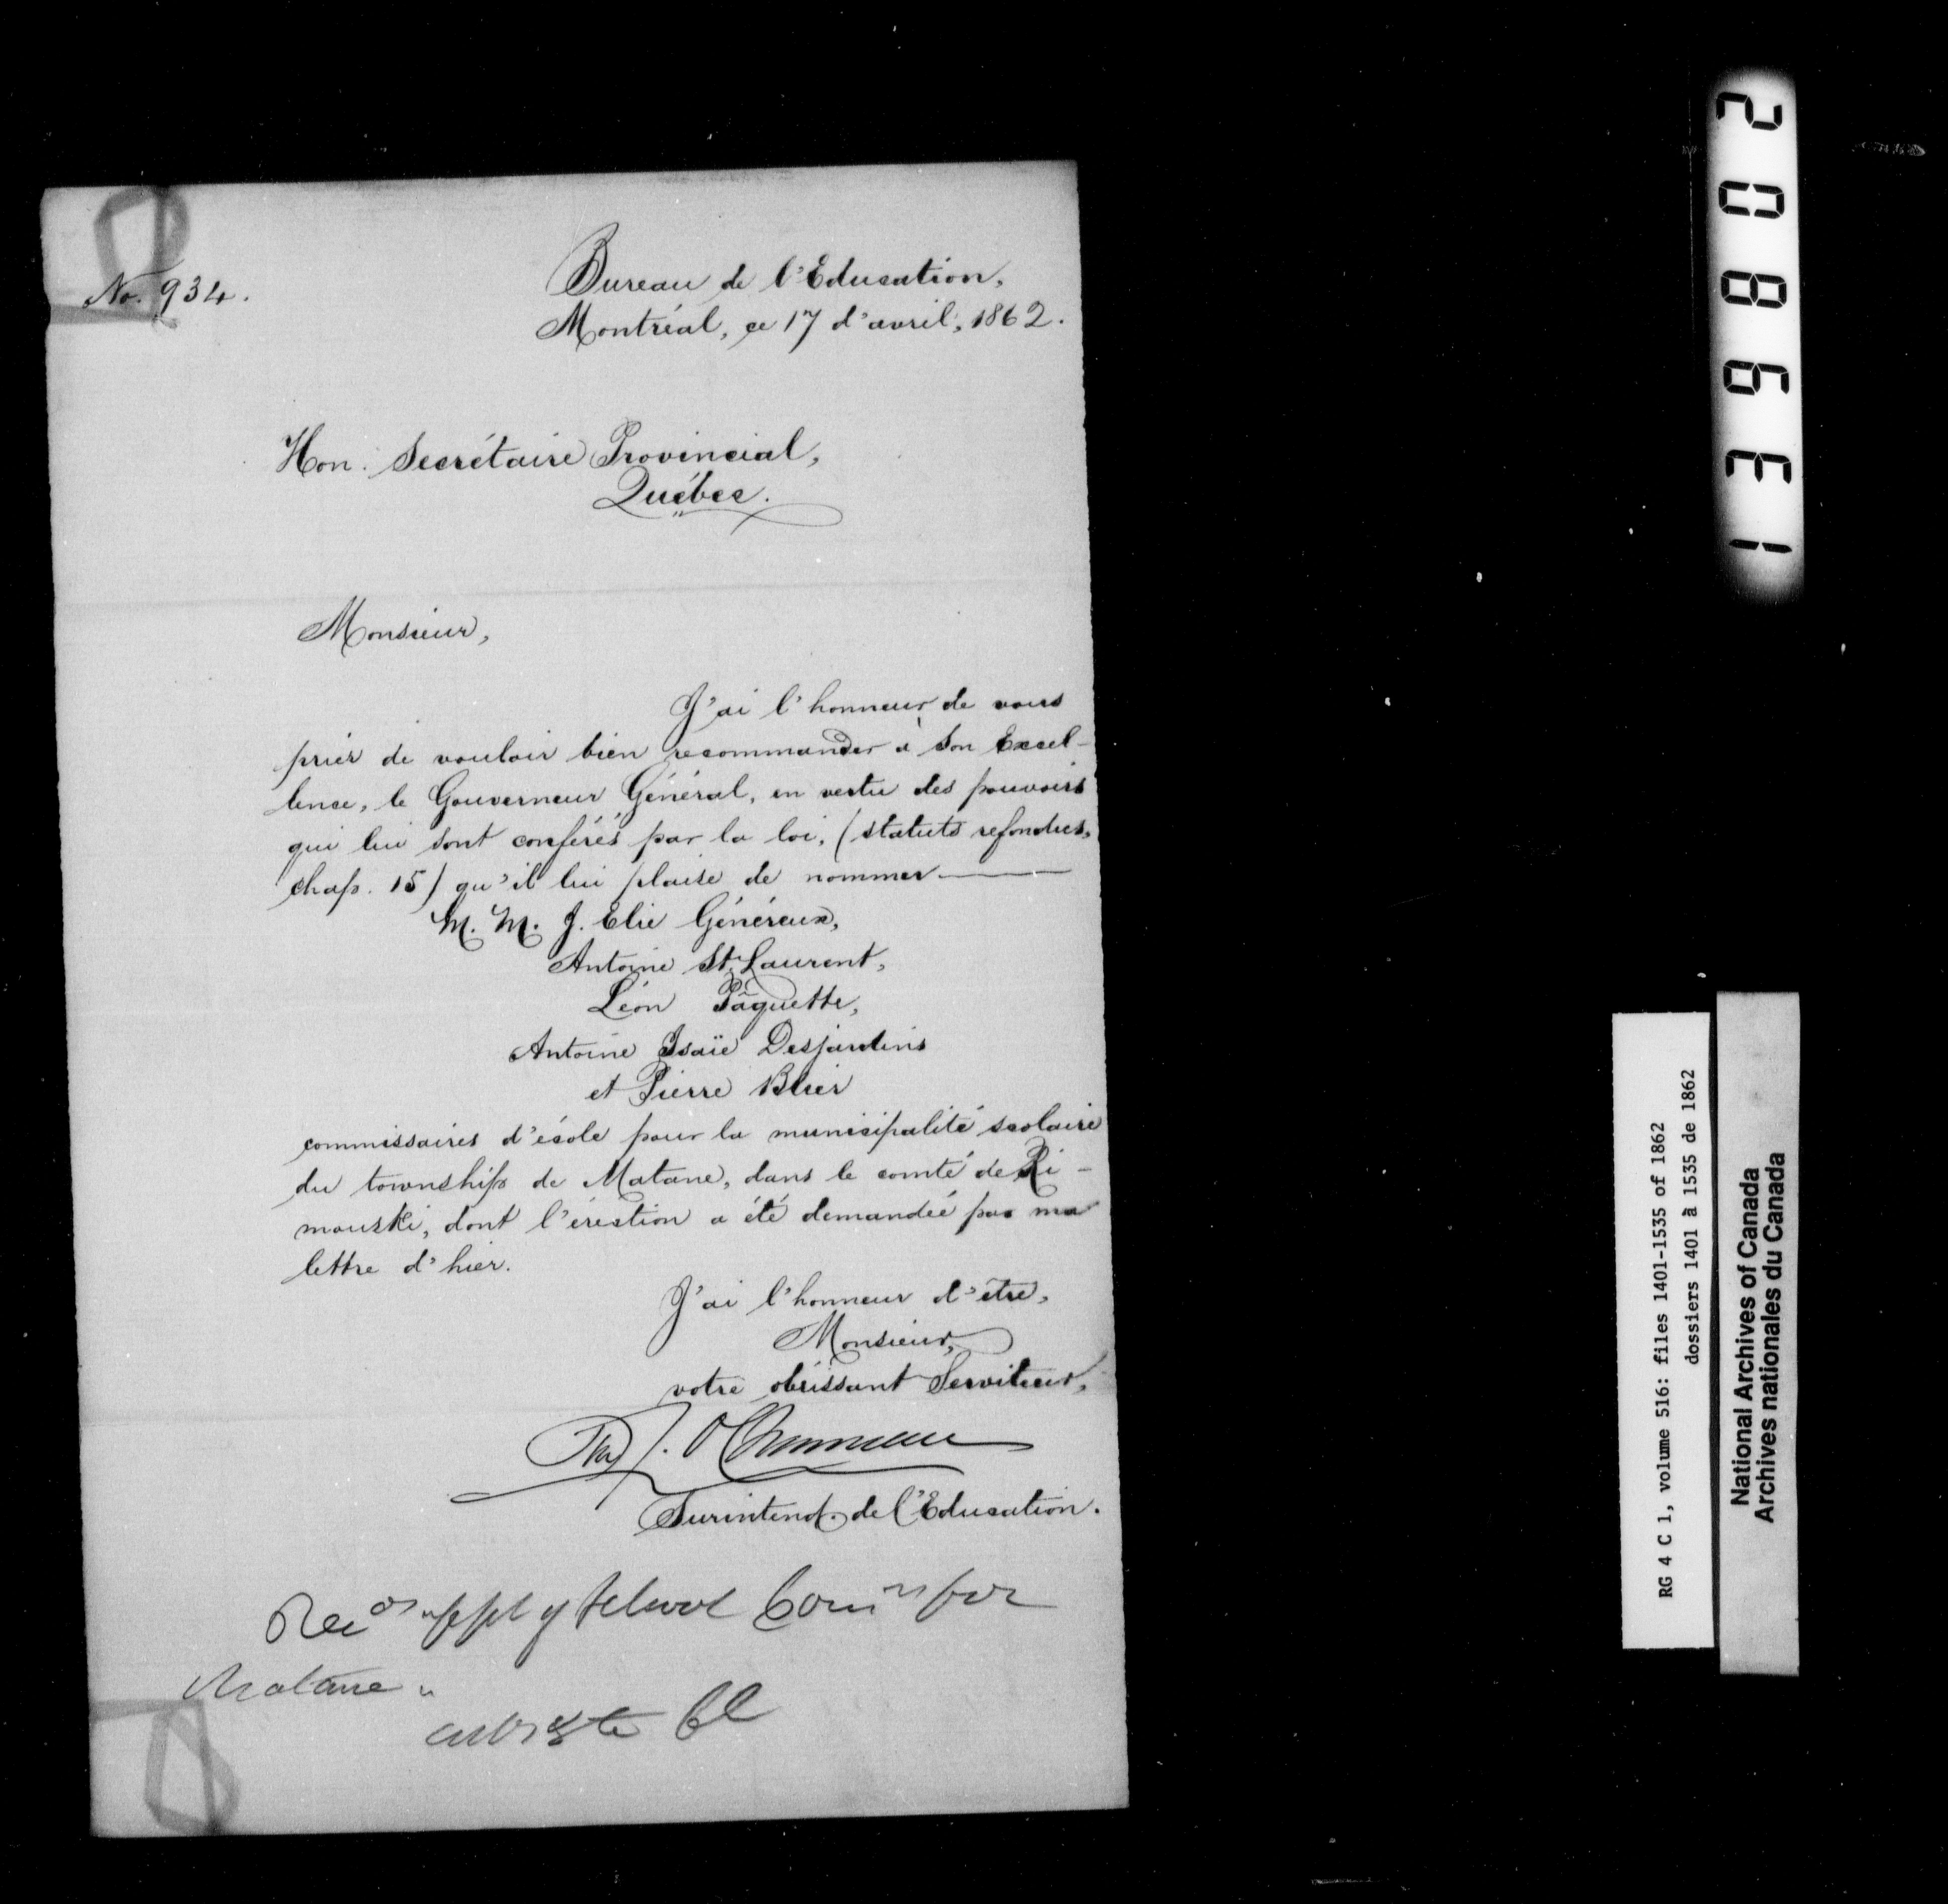 No. 934.
Bureau de l'Education,
Montréal, ce 17 d'avril, 1862.
Hon. Secrétaire Provincial,
Québec.
Monsieur,
J'ai l'honneur de vous
prier de vouloir bien recommander à Son Excel-
lence, le Gouverneur Général, en vertu des pouvoirs
qui lui sont conférés par la loi, (statuts refondus,
chap. 15) qu'il lui plaise de nommer
M. M. J. Elie Généreux,
Antoine St. Laurent,
Léon Pâquette,
Antoine Isaïe Desjardins
et Pierre Blier
commissaires d'école pour la municipalité scolaire
du township de Matane, dans le comté de Ri-
mouski, dont l'érection a été demandée par ma
lettre d'hier.
J'ai l'honneur d'être,
Monsieur,
votre obéissant Serviteur,
J. O Chauveau
Surintend. de l'Education.
School Comrs for
Matane
208631
RG 4 C 1, volume 516: files 1401-1535 of 1862
dossiers 1401 à 1535 de 1862
National Archives of Canada
Archives nationales du Canada